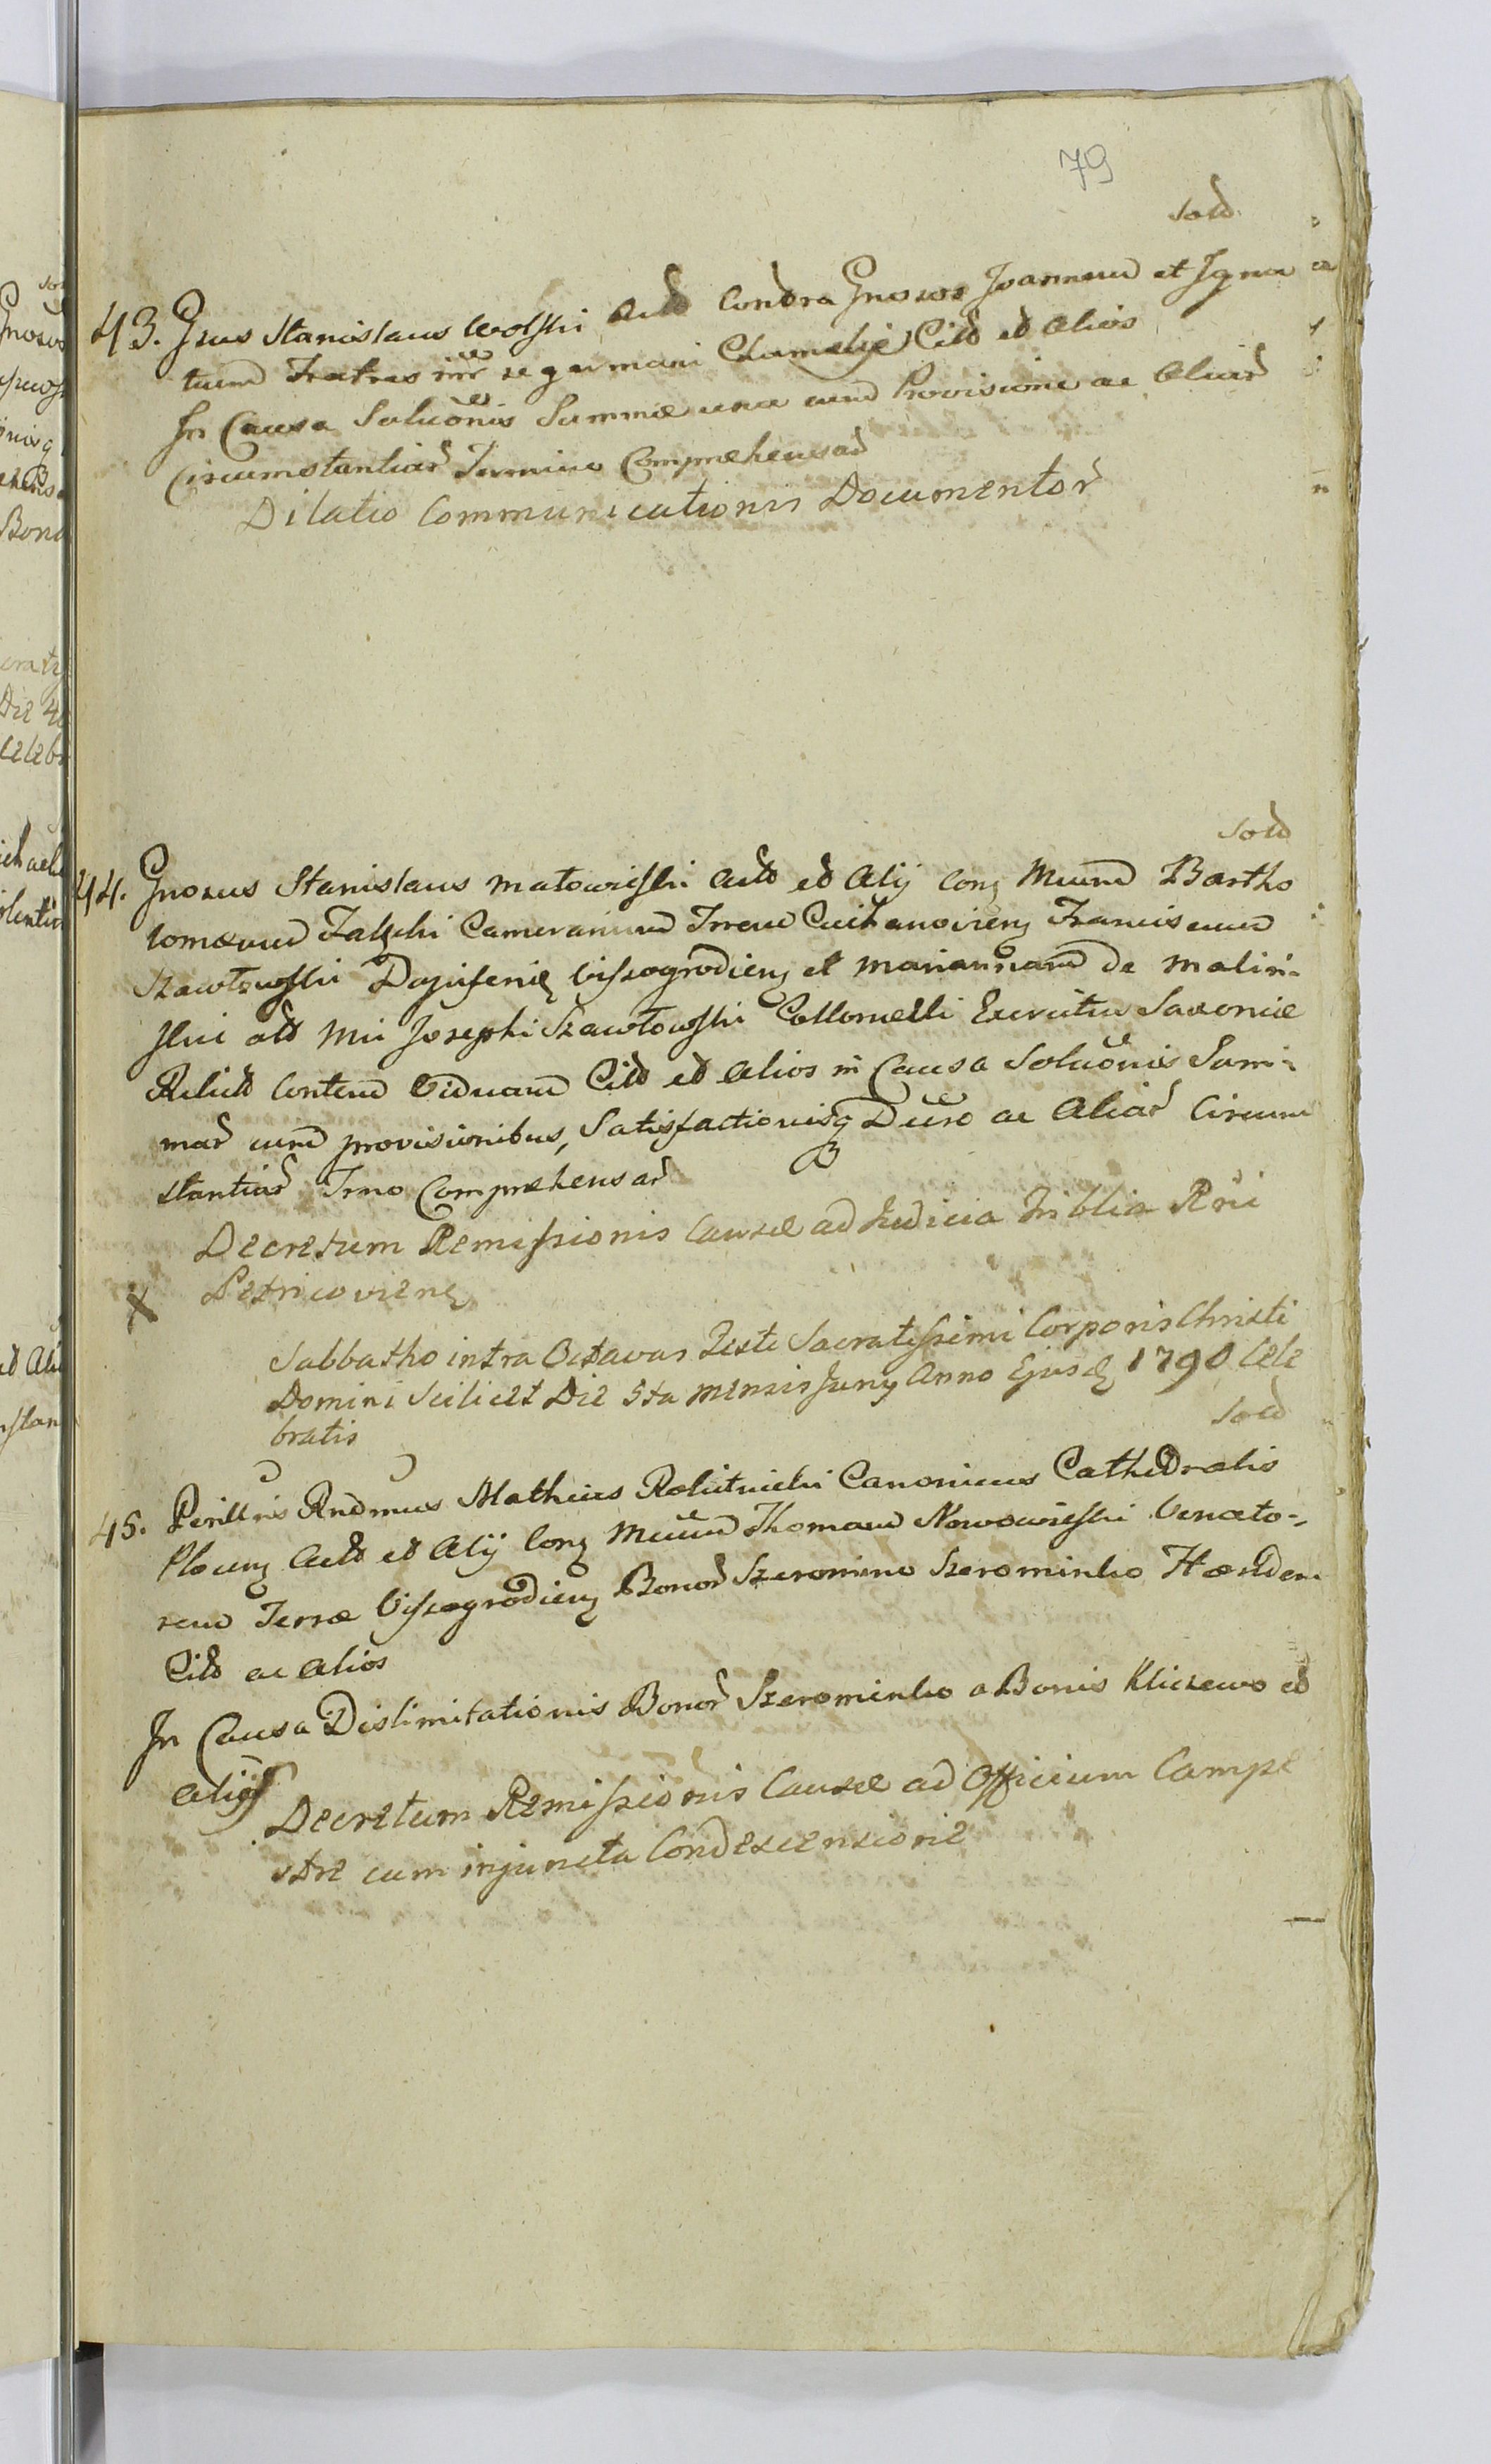 79
Sold
43. Gnsus Stanislaus Wolski Actd Contra Gnosos Joannem et Igna
tium Fratres inr se germani Chamskje Citd et Alios
In Causa Soluōnis Summæ una cum Provisione ac Aliar
Circumstantiar Termino Comprehensar
Dilatio Communicationis Documentor
Sold
44. Gnosus Stanislaus Matowieski Actd et Alij Conz Mcum Bartho
lomæum Falęcki Camerarium Trreu Ciechanovienz Franciscum
Szawłowski Dapiferię Vissogrodienz et Mariannam de Malin-
skie old Mci Josephi Szawłowski Collonelli Exercitus Saxoniæ
Relictd Contem Viduam Citd et Alios in Causa Soluōnis Sum-
mar cum provisionibus, Satisfactionisq Decro ac Aliar Circum
stantiar Trno Comprehensar
Decretum Remissionis Causæ ad Judicia Triblia Rni
Petricovienz
X
Sabbatho intra Octavas Festi Sacratissimi Corporis Christi
Domini Scilicet Die 5ta mensis Juny Anno Ejusd 1790 Cele
bratis
Sold
45. Perillris Rndmus Mathias Rokitnicki Canonicus Cathedralis
Plocenz Actd et Alij Conz Mcum Thomam Nowowieski Venato-
rem Terræ Vissogrodienz Bonor Szeromino Szerominko Hæredem
Citd ac Alios
In Causa Dislimitationis Bonor Szerominko a Bonis Kliczewo et
Alijs
Decretum Remissionis Causæ ad Officium Campe
stre cum injuncta Condescensione